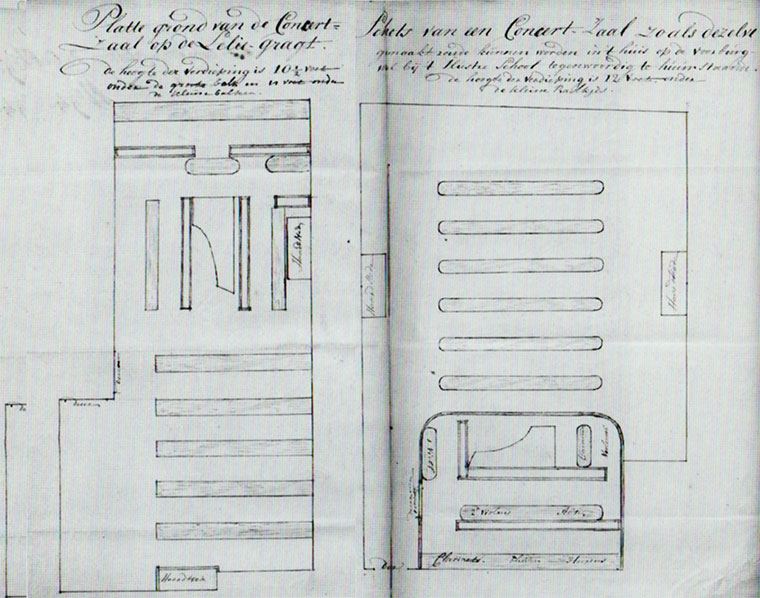 Platte grond van de Concert=
Zaal op de Lelie-gragt.
de hoogte der verdieping is 10½ voet
onder de groote balk en 11 voet onder
de kleine balken.
Schets van een Concert-Zaal zo als dezelve
gemaakt zoude kunnen worden in 't huis op de voorburg-
wal bij 't Illustre School tegenwoordig te huur staande.
de hoogte der verdieping is 12 voet onder
de kleine
Haardstede
Haardstede
Haardstede
Haardstede
deuren
deur
2 Violins
Alt
Clarinets.
Fluiten
Hoorns